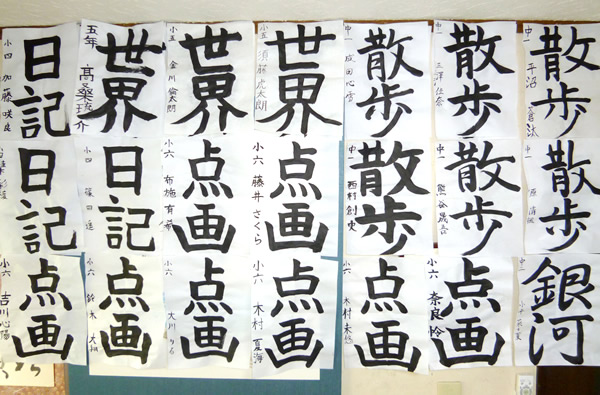 散歩
中一
散歩
中一 三澤
散歩
中一 成田心
世界
小五 須藤虎太朗
世界
小五 金川倫太朗
世界
五年 高桑
日記
小四 加藤咲良
散歩
中一
散歩
中一 熊谷
散歩
中一 西村創史
点画
小六 藤井さくら
点画
小六 布施
日記
小四 篠田
日記
銀河
中一
点画
小六 奈良怜
点画
小六 木村
点画
小六 木村夏海
点画
小六 大川
点画
小六 鈴木大
点画
小六 吉川心陽